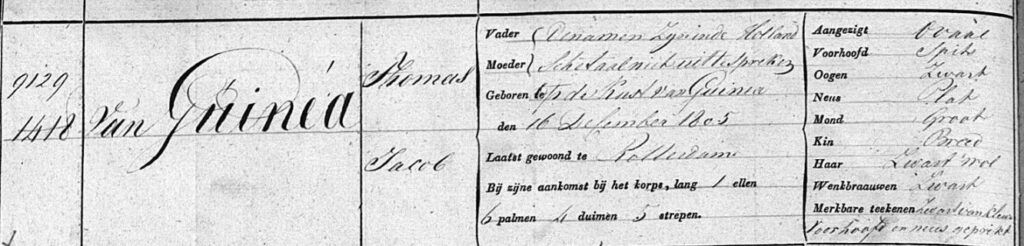 9129
1418
van Guinéa
Thomas
Jacob
Vader De namen zyn in de Holland
Moeder sche taal niet uit te spreken
Geboren te op de Kust van Guinea
den 16 December 1805
Laatst gewoond te Rotterdam
Bij zijne aankomst bij het korps, lang 1 ellen
6 palmen 4 duimen 5 strepen.
Aangezigt Ovaal
Voorhoofd Spits
Oogen Zwart
Neus Plat
Mond Groot
Kin Breed
Haar Zwart Wol
Wenkbraauwen Zwart
Merkbare teekenen Zwart van kleur
voorhoofd en neus geprikt